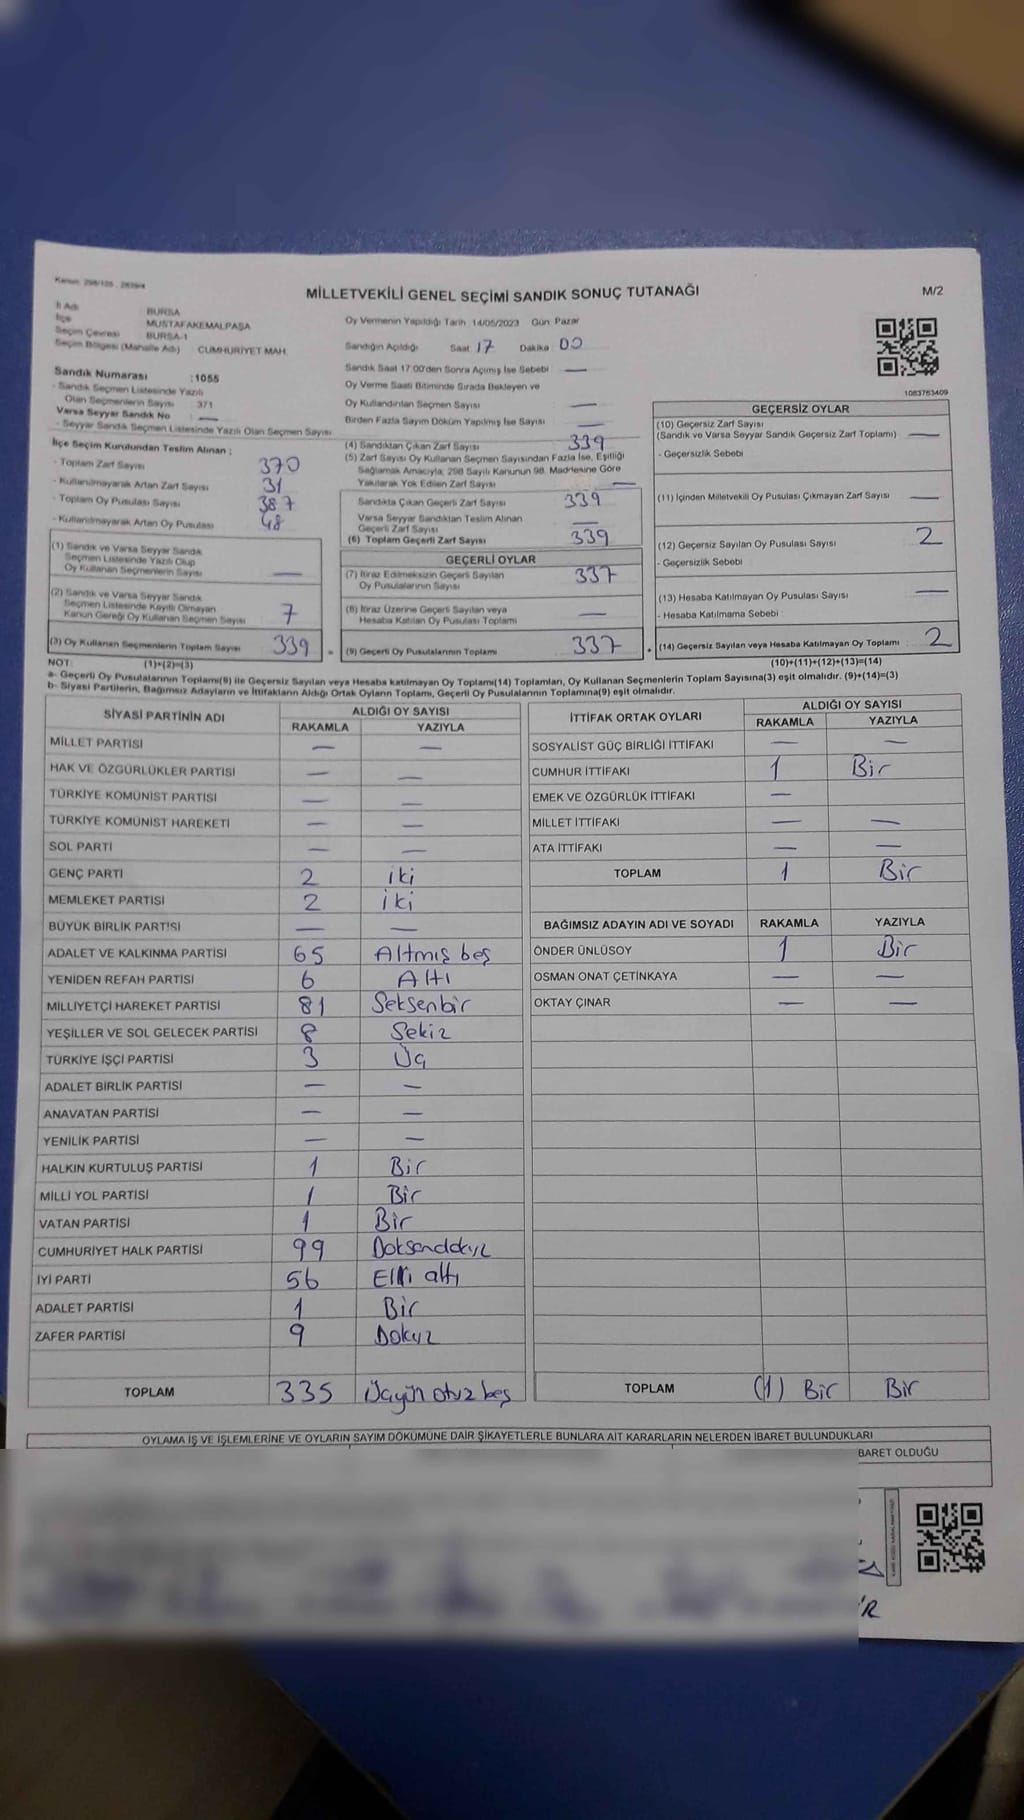 Kanun: 298/105 , 2839/4
MİLLETVEKİLİ GENEL SEÇİMİ SANDIK SONUÇ TUTANAĞI
M/2
İl Adı BURSA
İlçe MUSTAFAKEMALPAŞA
Seçim Çevresi BURSA-1
Seçim Bölgesi (Mahalle Adı) CUMHURİYET MAH.
Sandık Numarası :1055
- Sandık Seçmen Listesinde Yazılı
Olan Seçmenlerin Sayısı 371
Varsa Seyyar Sandık No —
- Seyyar Sandık Seçmen Listesinde Yazılı Olan Seçmen Sayısı
İlçe Seçim Kurulundan Teslim Alınan ;
- Toplam Zarf Sayısı 370
- Kullanılmayarak Artan Zarf Sayısı 31
- Toplam Oy Pusulası Sayısı 387
- Kullanılmayarak Artan Oy Pusulası 48
(1) Sandık ve Varsa Seyyar Sandık
Seçmen Listesinde Yazılı Olup
Oy Kullanan Seçmenlerin Sayısı —
(2) Sandık ve Varsa Seyyar Sandık
Seçmen Listesinde Kayıtlı Olmayan
Kanun Gereği Oy Kullanan Seçmen Sayısı 7
(3) Oy Kullanan Seçmenlerin Toplam Sayısı 339
Oy Vermenin Yapıldığı Tarih 14/05/2023 Gün Pazar
Sandığın Açıldığı Saat 17 Dakika 00
Sandık Saat 17:00'den Sonra Açılmış İse Sebebi —
Oy Verme Saati Bitiminde Sırada Bekleyen ve
Oy Kullandırılan Seçmen Sayısı —
Birden Fazla Sayım Döküm Yapılmış İse Sayısı —
(4) Sandıktan Çıkan Zarf Sayısı 339
(5) Zarf Sayısı Oy Kullanan Seçmen Sayısından Fazla İse, Eşitliği
Sağlamak Amacıyla, 298 Sayılı Kanunun 98. Maddesine Göre
Yakılarak Yok Edilen Zarf Sayısı —
Sandıkta Çıkan Geçerli Zarf Sayısı 339
Varsa Seyyar Sandıktan Teslim Alınan
Geçerli Zarf Sayısı —
(6) Toplam Geçerli Zarf Sayısı 339
GEÇERLİ OYLAR
(7) İtiraz Edilmeksizin Geçerli Sayılan
Oy Pusulalarının Sayısı 337
(8) İtiraz Üzerine Geçerli Sayılan veya
Hesaba Katılan Oy Pusulası Toplamı —
= (9) Geçerli Oy Pusulalarının Toplamı 337
1083763409
GEÇERSİZ OYLAR
(10) Geçersiz Zarf Sayısı
(Sandık ve Varsa Seyyar Sandık Geçersiz Zarf Toplamı) —
- Geçersizlik Sebebi
(11) İçinden Milletvekili Oy Pusulası Çıkmayan Zarf Sayısı —
(12) Geçersiz Sayılan Oy Pusulası Sayısı 2
- Geçersizlik Sebebi
(13) Hesaba Katılmayan Oy Pusulası Sayısı —
- Hesaba Katılmama Sebebi
+ (14) Geçersiz Sayılan veya Hesaba Katılmayan Oy Toplamı : 2
NOT: (1)+(2)=(3) (10)+(11)+(12)+(13)=(14)
a- Geçerli Oy Pusulalarının Toplamı(9) ile Geçersiz Sayılan veya Hesaba katılmayan Oy Toplamı(14) Toplamları, Oy Kullanan Seçmenlerin Toplam Sayısına(3) eşit olmalıdır. (9)+(14)=(3)
b- Siyasi Partilerin, Bağımsız Adayların ve İttifakların Aldığı Ortak Oyların Toplamı, Geçerli Oy Pusulalarının Toplamına(9) eşit olmalıdır.
SİYASİ PARTİNİN ADI ALDIĞI OY SAYISI
RAKAMLA YAZIYLA
MİLLET PARTİSİ — —
HAK VE ÖZGÜRLÜKLER PARTİSİ — —
TÜRKİYE KOMÜNİST PARTİSİ — —
TÜRKİYE KOMÜNİST HAREKETİ — —
SOL PARTİ — —
GENÇ PARTİ 2 iki
MEMLEKET PARTİSİ 2 iki
BÜYÜK BİRLİK PARTİSİ — —
ADALET VE KALKINMA PARTİSİ 65 Altmış beş
YENİDEN REFAH PARTİSİ 6 Altı
MİLLİYETÇİ HAREKET PARTİSİ 81 Seksenbir
YEŞİLLER VE SOL GELECEK PARTİSİ 8 Sekiz
TÜRKİYE İŞÇİ PARTİSİ 3 Üç
ADALET BİRLİK PARTİSİ — —
ANAVATAN PARTİSİ — —
YENİLİK PARTİSİ — —
HALKIN KURTULUŞ PARTİSİ 1 Bir
MİLLİ YOL PARTİSİ 1 Bir
VATAN PARTİSİ 1 Bir
CUMHURİYET HALK PARTİSİ 99 Doksandokuz
İYİ PARTİ 56 Elli altı
ADALET PARTİSİ 1 Bir
ZAFER PARTİSİ 9 Dokuz
TOPLAM 335 Üçyüz otuz beş
İTTİFAK ORTAK OYLARI ALDIĞI OY SAYISI
RAKAMLA YAZIYLA
SOSYALİST GÜÇ BİRLİĞİ İTTİFAKI — —
CUMHUR İTTİFAKI 1 Bir
EMEK VE ÖZGÜRLÜK İTTİFAKI —
MİLLET İTTİFAKI — —
ATA İTTİFAKI — —
TOPLAM 1 Bir
BAĞIMSIZ ADAYIN ADI VE SOYADI RAKAMLA YAZIYLA
ÖNDER ÜNLÜSOY 1 Bir
OSMAN ONAT ÇETİNKAYA — —
OKTAY ÇINAR — —
TOPLAM (1) Bir Bir
OYLAMA İŞ VE İŞLEMLERİNE VE OYLARIN SAYIM DÖKÜMÜNE DAİR ŞİKAYETLERLE BUNLARA AİT KARARLARIN NELERDEN İBARET BULUNDUKLARI
BARET OLDUĞU